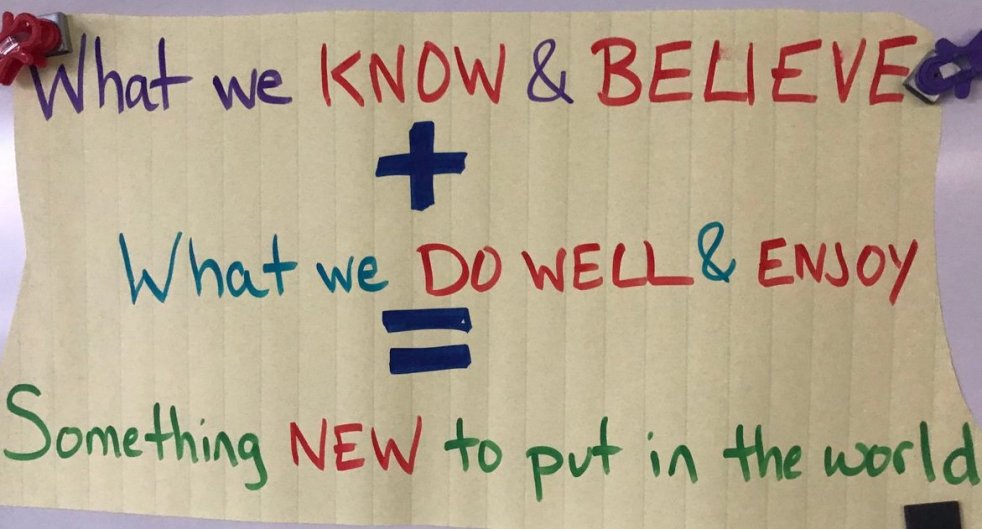 What we KNOW & BELIEVE
+
What we DO WELL & ENJOY
=
Something NEW to put in the world